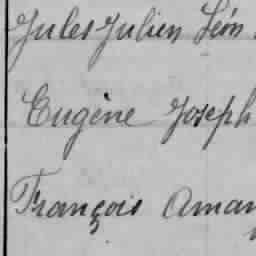 Jules Julien Léon
Eugène Joseph
François Aman